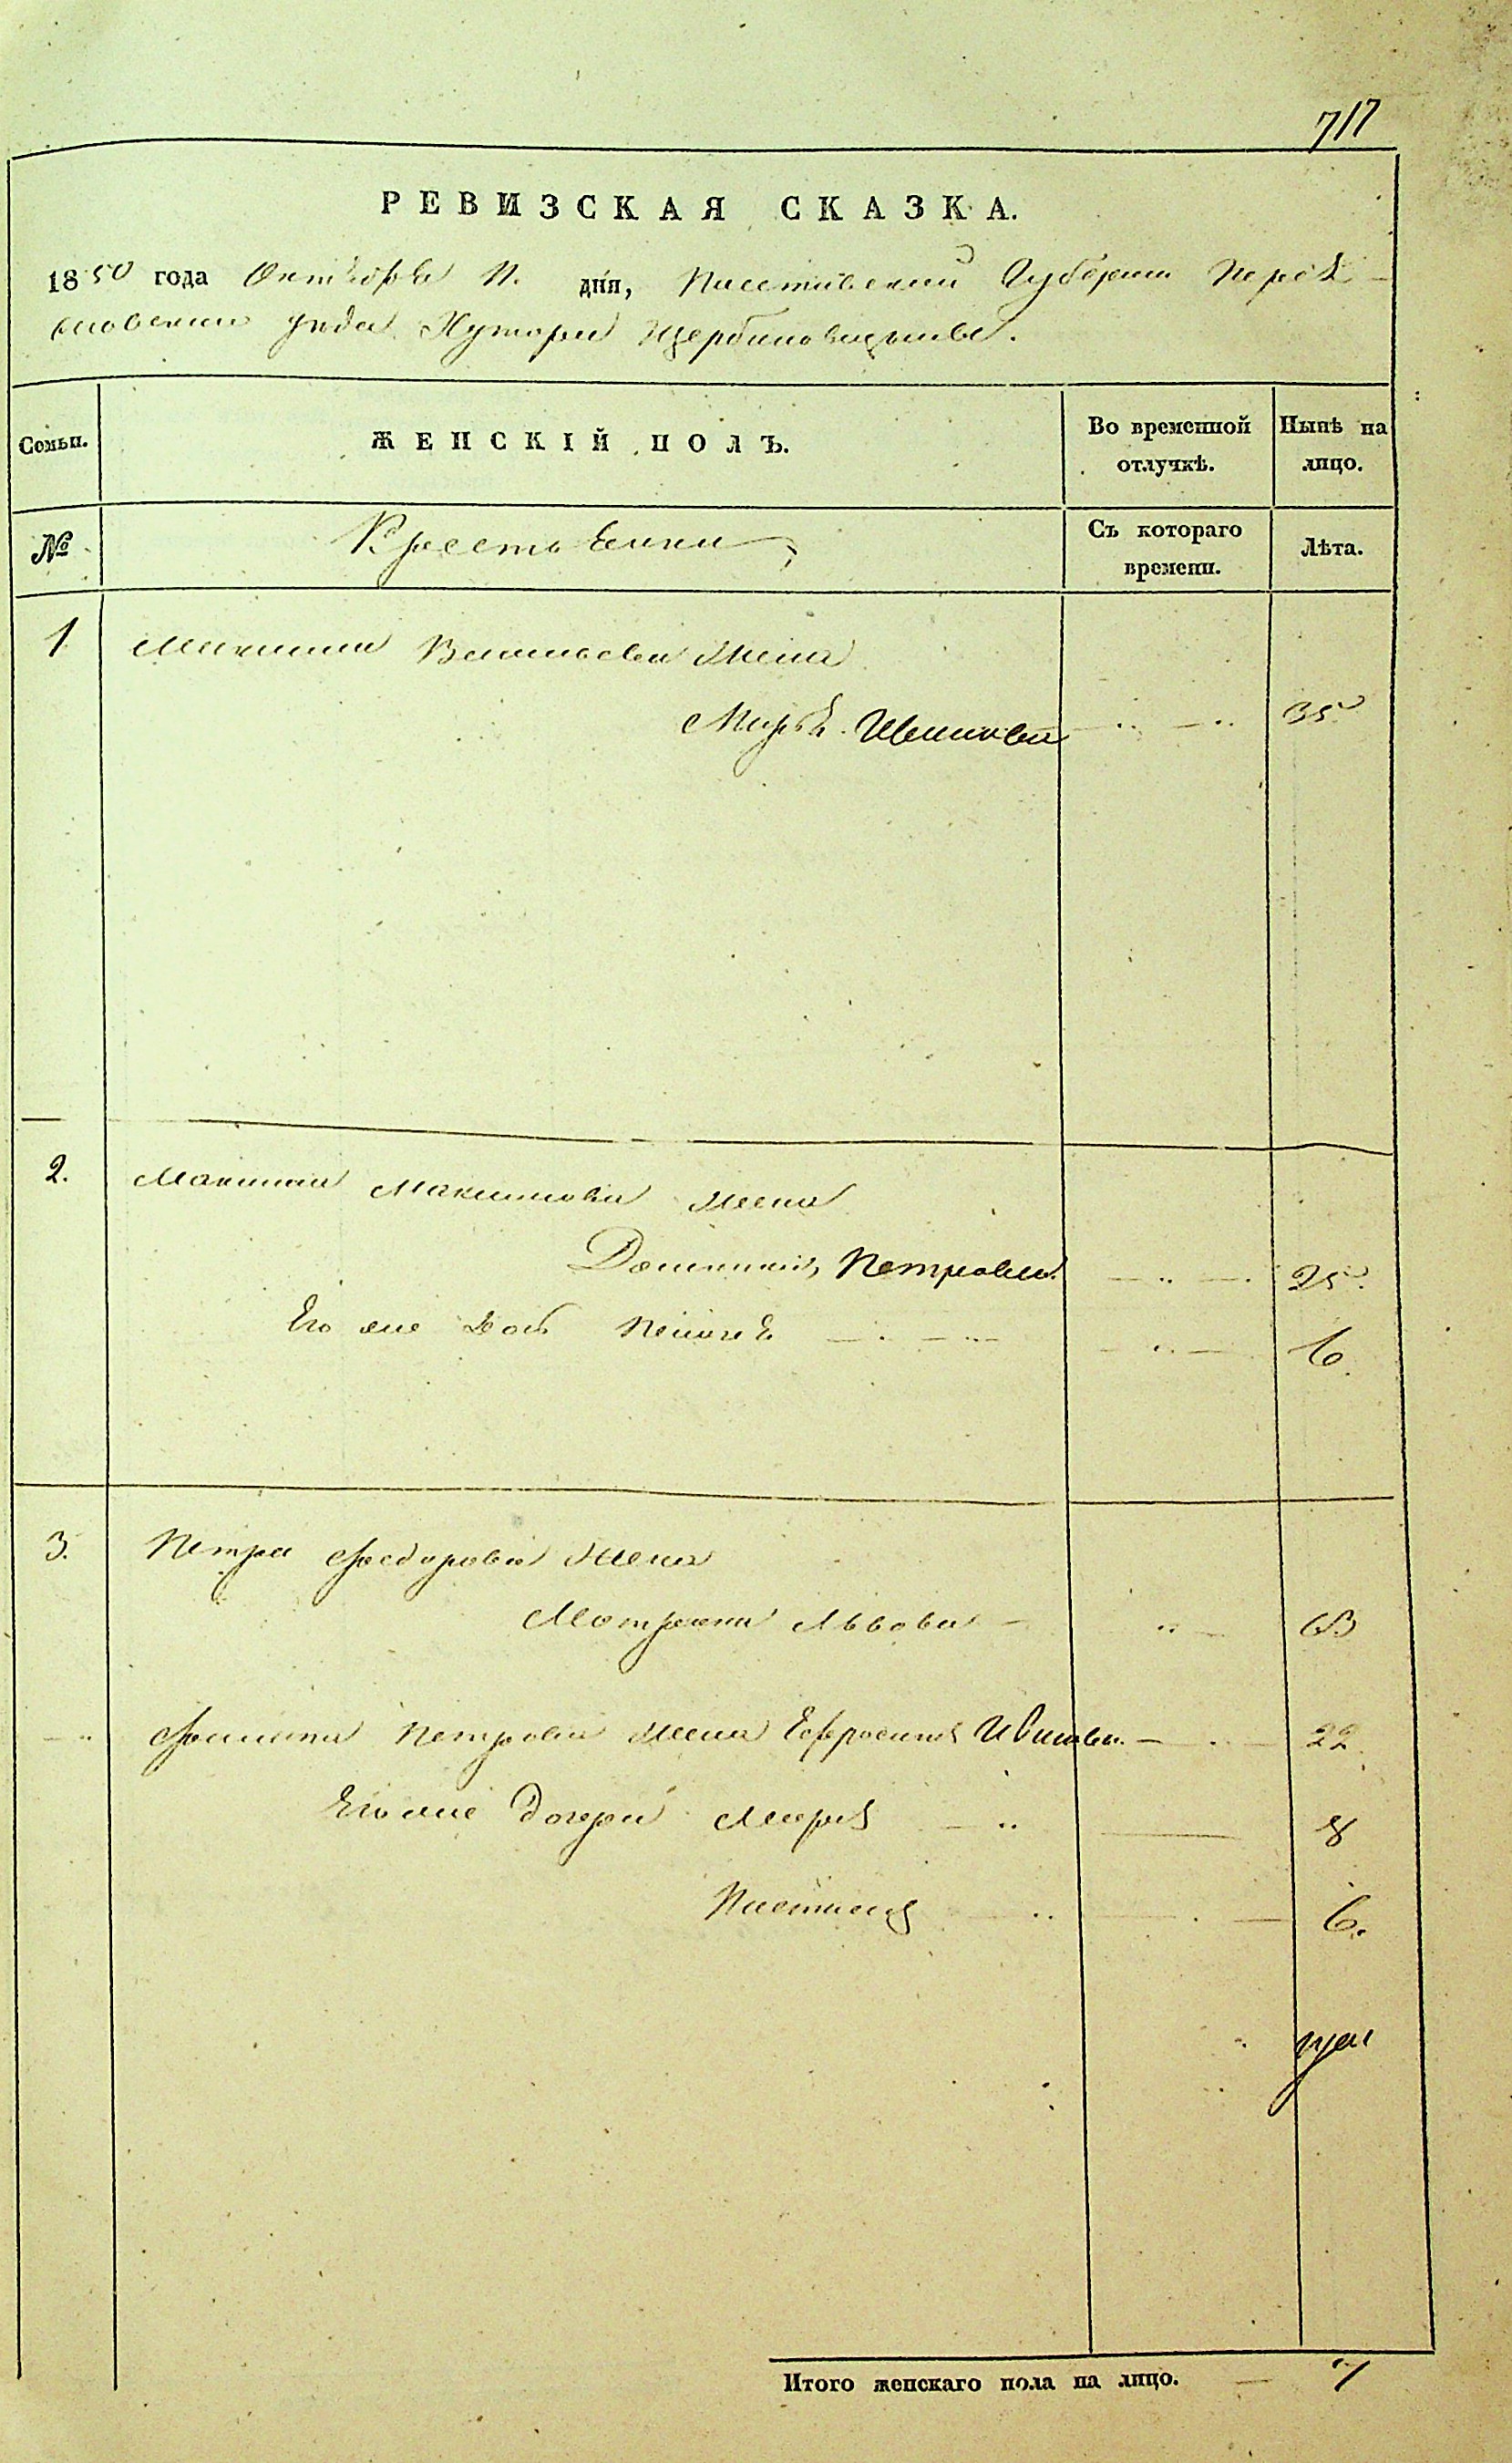 717
РЕВИЗСКАЯ СКАЗКА.
1850 года Октября 11. дня, Полтавской Губернии Переяславскаго уезда Хутора Щербиновщины.
Семьи. ЖЕНСКІЙ ПОЛЪ. Во временной отлучкѣ. Нынѣ на лицо.
№ Крестьянки Съ котораго времени. Лѣта.
1 Максима Васильева жена
Марья Иванова 35
2. Максима Максимова жена
Домникия Петрова 25.
Его же дочь 6
3. Петра Федорова жена
Мотрона Львова 63
Филипа Петрова жена Ефросиния Иванова 22
Его же дочери Мария 8
Настасия 6.
Итого женскаго пола на лицо. 7